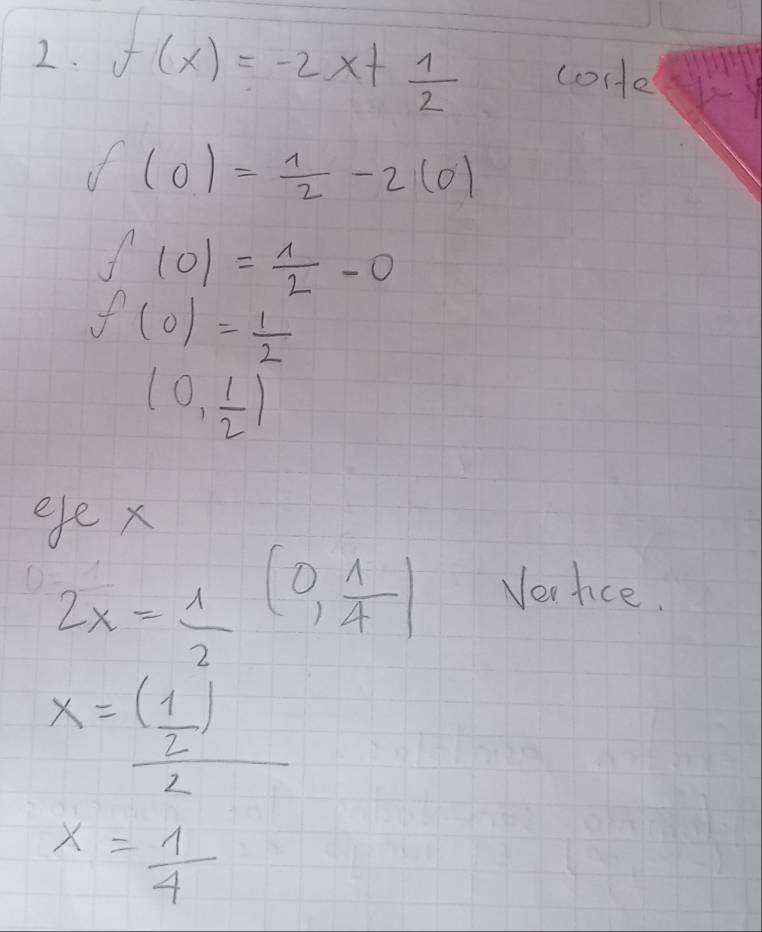 2. f(x) = -2x + 1/2 corte
f(0) = 1/2 - 2(0)
f(0) = 1/2 - 0
f(0) = 1/2
(0, 1/2)
eje x
2x = 1/2 (0, 1/4) Vertice.
x = (1/2)/2
x = 1/4